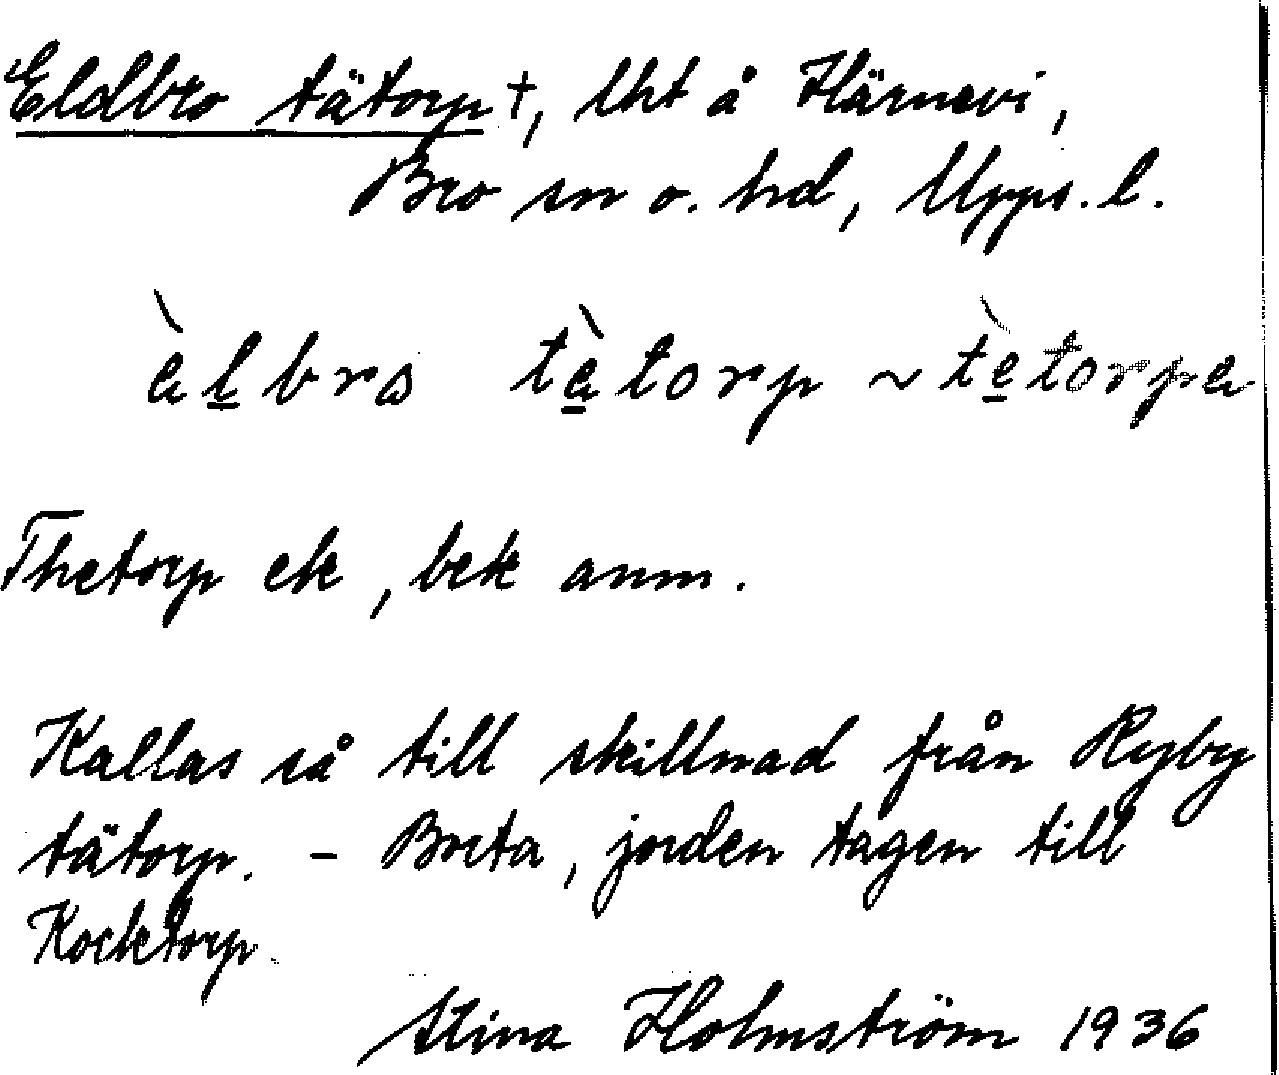 Eldbro tätorp †, lht å Härnevi,
Bro sn o. hd, Upps. l.
èl̲brω tè̲torp ~ tè̲torpa
Thetorp ek, bek anm.
Kallas så till skillnad från Ryby
tätorp. – Borta, jorden tagen till
Kocktorp.
Stina Holmström 1936